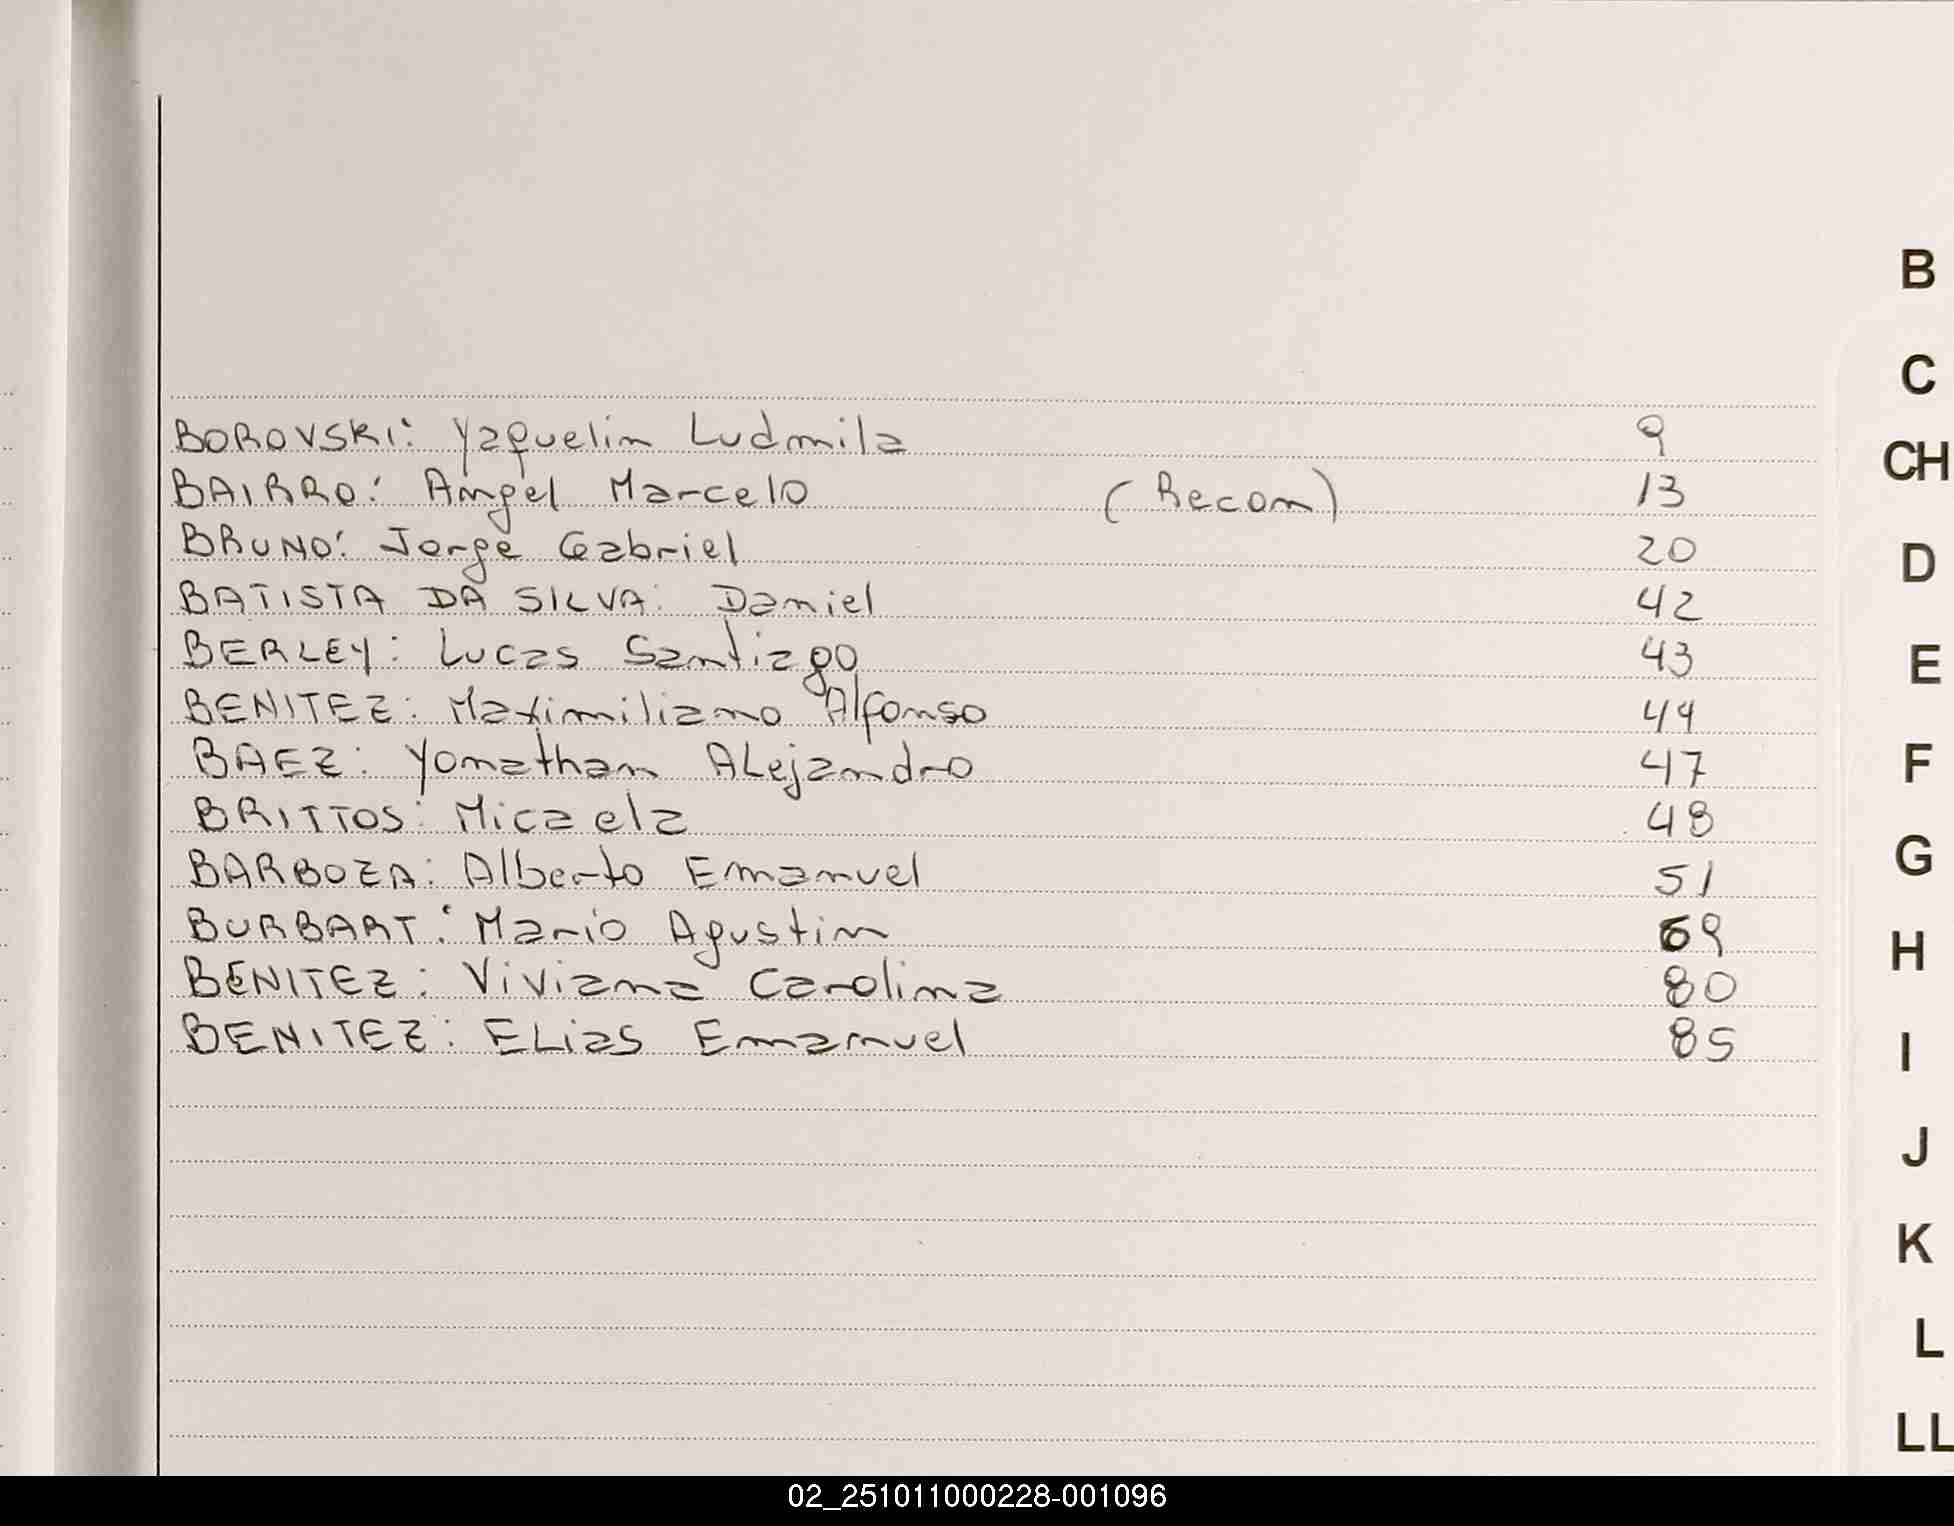 BOROVSKI: Yaquelin Ludmila 9
BAIRRO: Angel Marcelo (Recon) 13
BRUNO: Jorge Gabriel 20
BATISTA DA SILVA: Daniel 42
BERLEY: Lucas Santiago 43
BENITEZ: Maximiliano Alfonso 44
BAEZ: Yonathan ALejandro 47
BRITTOS: Micaela 48
BARBOZA: Alberto Emanuel 51
BURBART: Mario Agustin 69
BENITEZ: Viviana Carolina 80
BENITEZ: ELias Emanuel 85
B
C
CH
D
E
F
G
H
I
J
K
L
LL
02_251011000228-001096